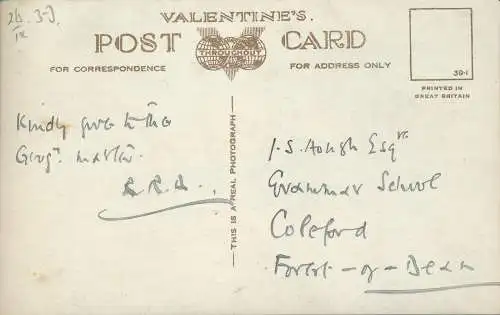 VALENTINE'S.
POST CARD
THROUGHOUT
FOR CORRESPONDENCE
FOR ADDRESS ONLY
39-1
PRINTED IN
GREAT BRITAIN
THIS IS A REAL PHOTOGRAPH
Kindly give to the
Geog. master.
J. S. Hough Esqre.
Grammar School
Coleford
Forest-of-Dean